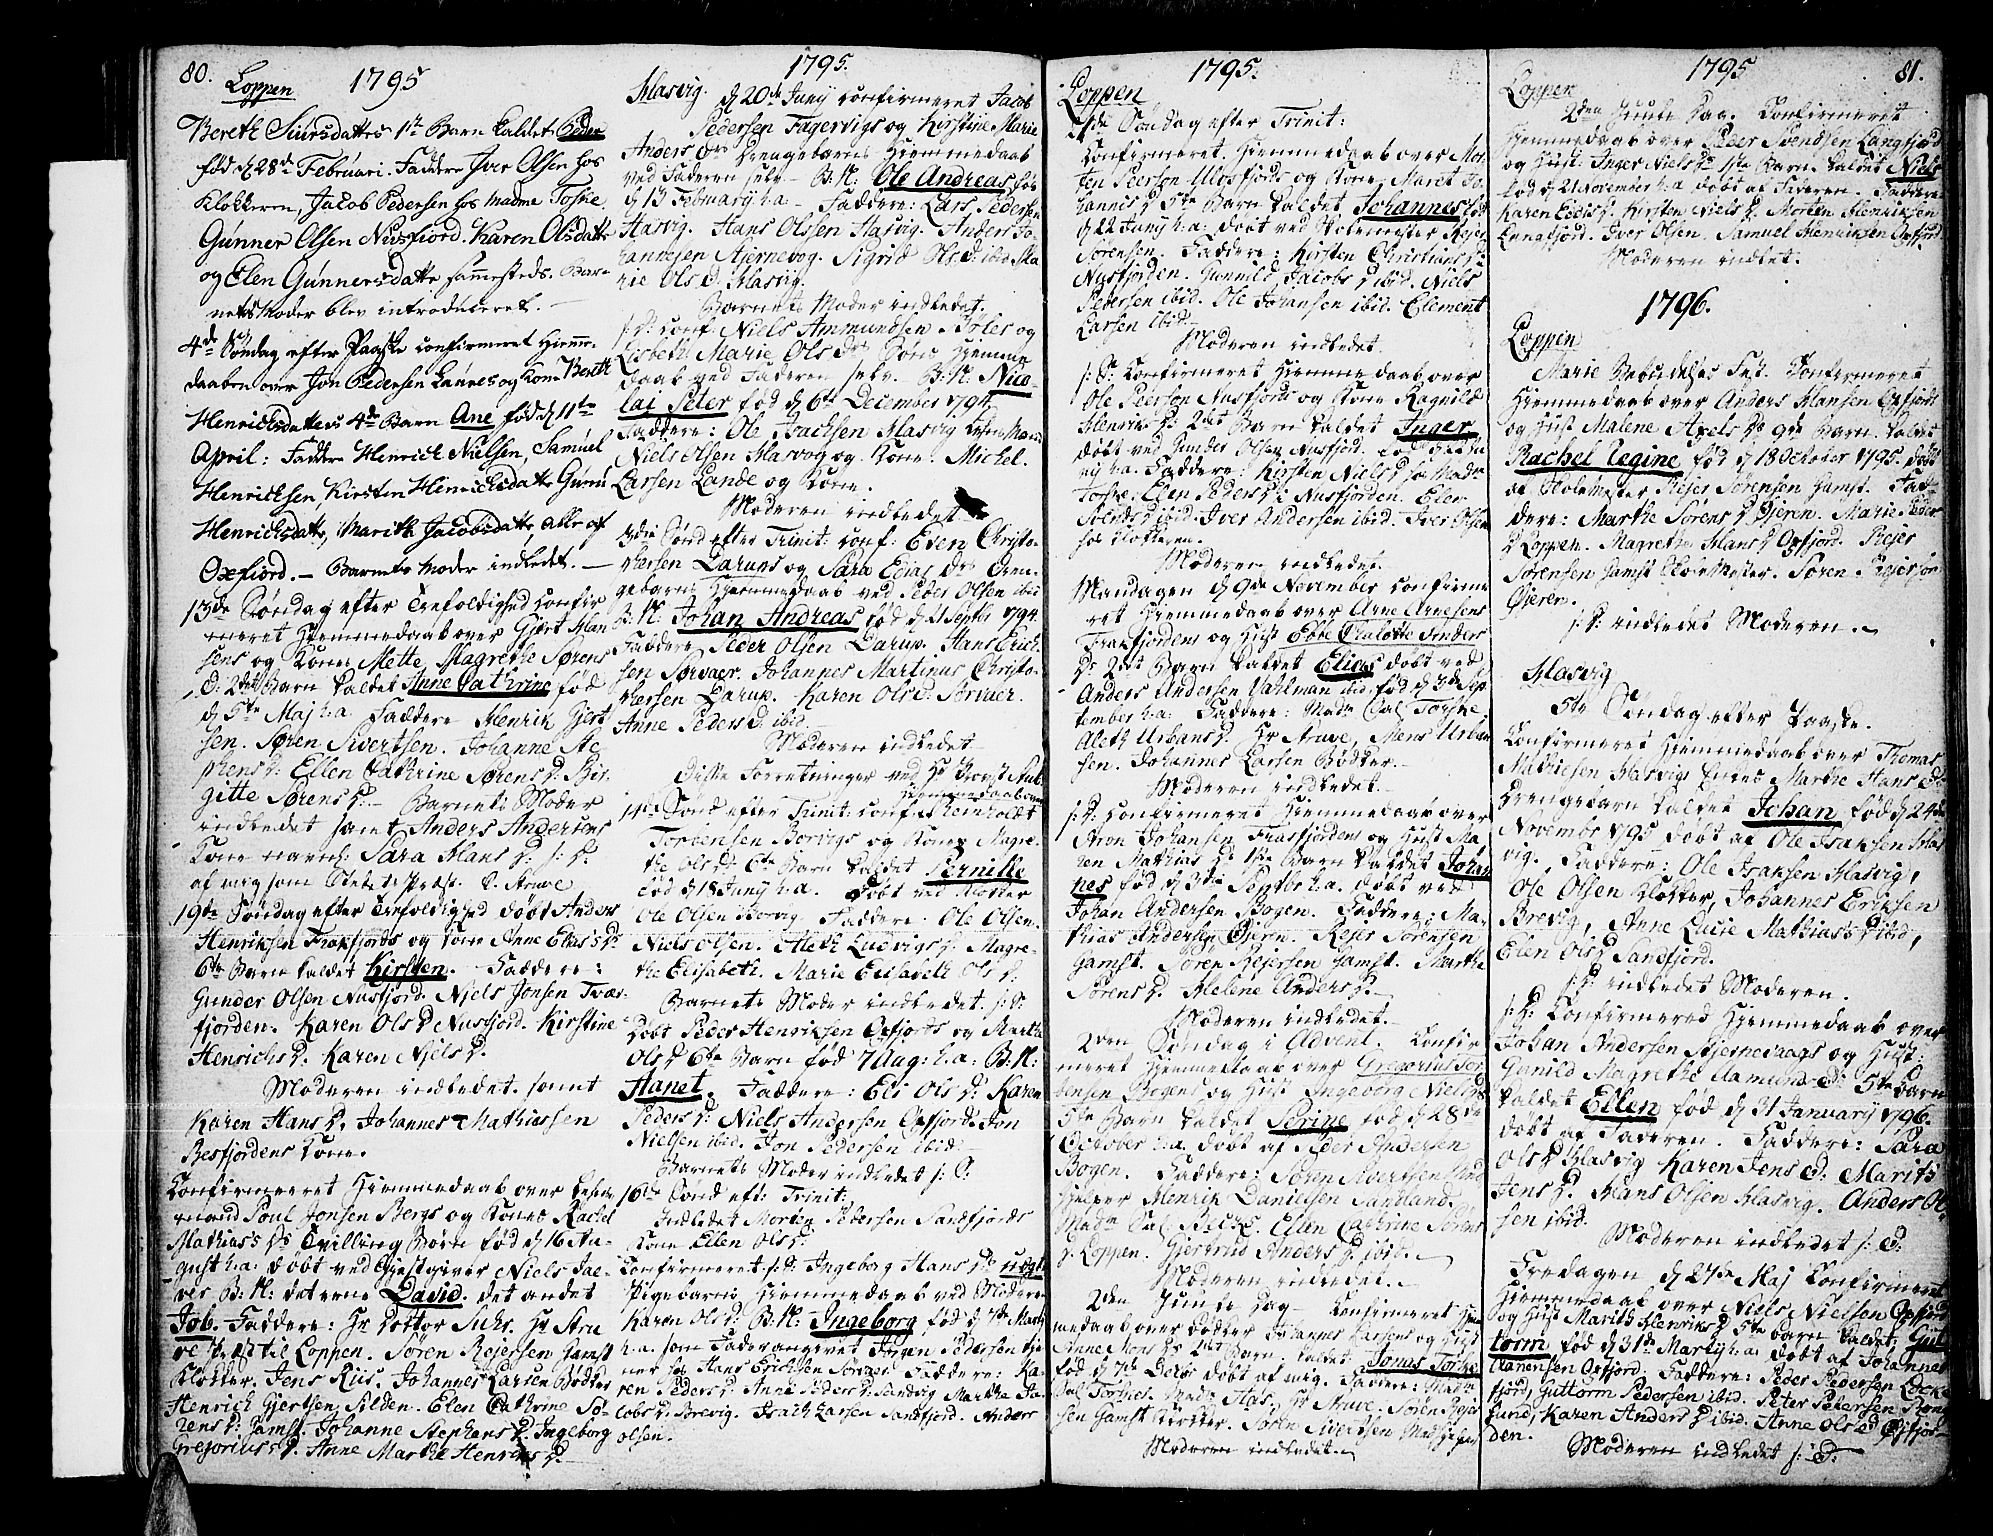 80. Loppen 1795
Bereth Siursdatters 1te Barn kaldet Peder
fød d 28de Februari. Faddere Iver Olsen hos
Klokkeren, Jacob Pedersen hos Madme Toske,
Gunner Olsen Nusfiord. Karen Olsdatter
og Elen Gunnersdatter sammesteds. Bar-
nets Moder blev introduceret.
4de Søndag efter Paaske confirmeret Hiemme-
daaben over Jon Pedersen Lannes og Kone Bereth
Henrichsdatters 4de Barn Ane fød d 11te
April: Faddere Henrich Nielsen, Samuel
Henrichsen, Kirsten Henrichsdatter Gunni
Henrichsdatter, Marith Jacobsdatter, alle af
Oxfiord. — Barnets Moder indledet. —
13de Søndag efter Trefoldighed confir
meret Hjemmedaab over Gjert Han
sens og Kone Mette Magrethe Sørens
D. 2det Barn kaldet Anne Cathrine fød
d 5te Maj h.a. Faddere Henrik Gjert
sen. Søren Sivertsen. Johanne Ste
phens D. Ellen Cathrine Sørens D. Bir
gitte Sørens D. — Barnets Moder
indledet samt Anders Andersens
Kone navnl: Sara Hans D. s: D.
af mig som Stedets Præst. C. Struve
19te Søndag efter Trefoldighed døbt Anders
Henriksen Frakfjords og Kone Anne Elias's D
6te Barn kaldet Kirsten. Faddere:
Gunder Olsen Nusfjord. Niels Jonsen Tvær-
fjorden. Karen Ols D Nusfjord. Kirstine
Henrichs D. Karen Njels D.
Moderen indledet. samt
Karen Hans D. Johannes Mathiassen
Besfjordens Kone.
Confirmeret Hjemmedaab over
mand Poul Jonsen Bergs og Kones Rachel
Mathias's D Tvilling Børn fød d 16 Au-
gust h.a. døbt ved Gjestgiver Niels
ver B: N: det eene David. det andet
Job. Faddere: Hr Doctor Suhr. Hr Stru
ve Præst til Loppen. Søren Rejersen Gamst
Klokker. Jens Riis. Johannes Larsen Bødker
Henrich Gjertsen Silden. Elen Cathrine Sø-
rens D. Gamst. Johanne Stephens D. Ingeborg
Gregorius's D. Anne Marthe Henriks D.
1795.
Hasvig. d 20de Junij confirmeret Jacob
Pedersen Fagervigs og Kirstine Marie
Anders Drs Drengebarns Hjemmedaab
ved Faderen selv — B. N: Ole Andreas fød
d 13 Februarij h.a. — Faddere: Lars Pedersen
Hasvig. Hans Olssen Hasvig. Anders Jo-
hannesen Stjernevog. Sigrid Ols D: ibid Ma
rie Ols D. Hasvig.
Barnets Moder indledet.
s: D: conf: Niels Ammundsen Boles og
Lisbeth Marie Ols Drs Søns Hjemme
daab ved Faderen selv. B: N: Nico-
lai Peter fød d 6te December 1794.
Faddere: Ole Isachsen Hasvig
Niels Olsen Hasvog og Kone. Michel
Larsen Lande og Kone.
Moderen indledet.
3die Sønd efter Trinit: conf: Even Christo-
phersen Darups og Sara Elias Drs Dren-
gebarns Hjemmedaab ved Peder Olsen ibid
B: N: Johan Andreas fød d 21 Septb 1794.
Faddere Peder Olsen Darup. Hans Erich
sen Sørvaer. Johannes Martinus Christo-
phersen Darup. Karen Ols D: Sørvaer.
Anne Peders D. ibid.
Moderen indledet
Disse Forretninger ved Hr Provst
Hjemmedaab over
14de Sønd efter Trinit: conf: Reinholdt
Torbensen Borvigs og Kones Magre-
the Ols D: 6te Barn kaldet Pernille
fød d 18 Junij h.a. døbt ved Klokker
Ole Olsen Borvig. Faddere: Ole Olsen.
Niels Olsen. Aleth Ludvigs D. Magre-
the Elisabeth. Marie Elisabeth Ols D.
Barnets Moder indledet. s: D:
Døbt Peder Henriksen Oxfjords og Marthe
Ols D 6te Barn fød 7 Aug: h.a. B: N:
Hanet. Faddere: Eli Ols D: Karen
Peders D: Niels Andersen Oxfjord. Jon
Nielsen ibid. Jon Pedersen ibid.
Barnets Moder indledet s: D:
16de Sønd eft: Trinit:
Indledet Morten Pedersen Sandfjords
Kone Ellen Ols D:
Confirmeret s: D: Ingeborg Hans Ds uægte
Pigebarns Hjemmedaab ved Moderen
Karen Ols D: B: N: Ingeborg fød d 7de Martj
h.a. som Fader angivet Ingen Pedersen tje
ner hos Hans Erichsen Sørvaer. Faddere: Ka-
ren Peders D. Anne Peders D. Sandvig Marthe Ja-
cobs D. Brevig. Isach Larsen Sandfjord. Anders
Olsen.
1795.
Loppen
Søndag efter Trinit:
Confirmeret. Hjemmedaab over Mor-
ten Peersen Ulvsfjords og Kone Maret Jo-
hannes D 5te Barn kaldet Johannes fød
d 22 Junij h.a: døbt ved Skolemester Rejer
Sørensen. Faddere: Kirsten Christians D
Nusfjorden. Gunnild Jacobs D ibid. Niels
Pedersen ibid. Ole Johansen ibid. Clement
Larsen ibid.
Moderen indledet.
s: D: Confirmeret Hjemmedaab over
Ole Peersen Nusfjords og Kone Ragnild
Henriks D: 2det Barn kaldet Inger
døbt ved Gunder Olsen Nusfjord. fød
h.a. Faddere: Kirsten Niels D hos Mad:
Toske. Elen Peders D i Nusfjorden. Elen
Svends D ibid. Iver Andersen ibid. Iver Olsen
hos Klokkeren.
Moderen indledet.
Mandagen d 9de November confirme
ret Hjemmedaab over Arne Arnesens
Frakfjordens og Hust Ebbe Chalotte Anders
Ds 2det Barn kaldet Elias døbt ved
Anders Andersen Vahlman ibid. fød d 3de Sep
tember h.a. Faddere: Madm Cal Torske
Aleth Urbans D. Hr Struve, Mons Urban
sen. Johannes Larsen Bødker.
Moderen indledet.
s. D. confirmeret Hjemmedaab over
Aron Johansen Frasfjordens og Hust Ma-
ren Mathias Ds 1ste Barn kaldet Johan
nes fød d 3die Septbr h.a. døbt ved
Johan Andersen Bogen. Faddere: Ma-
thias Andersen Øjeren. Rejer Sørensen
Gamst. Søren Rejersen Gamst. Marthe
Sørens D. Helene Anders D.
Moderen indledet.
2den Søndag i Advent. Confir
meret Hjemmedaab over Gregorius Tor-
bensen Bogens og Hust Ingeborg Niels Ds
5te Barn kaldet Serine fød d 28de
October h.a. døbt af Peder Andersen
Bogen. Faddere: Søren Sivertsen Med
hjelper Henrik Danielsen Sandland.
Madm Cal Buck. Ellen Cathrine Sørens
D. Loppen. Gjertrud Anders D ibid.
Moderen indledet.
2den Juule Dag — Confirmeret Hjem
medaab over Bødker Johannes Larsens og Hust
Anne Mons Ds 2det Barn kaldet Jonas Torske
fød d 7de Decbr døbt af mig. Faddere: Madm
Cal Torske. Madm Has. Hr Struve. Søren Rejer
sen Gamst Klokker. Søren Sivertsen Medhjelper
Moderen indledet.
1795 81.
Loppen
2den Juule Dag. Confirmeret
Hjemmedaab over Peder Svendsen Langfjord
og Hust: Inger Niels Ds 1ste Barn kaldet Niels
fød d 21 November h.a døbt af Faderen. Faddere
Karen Eidis D. Kirsten Niels D. Morten Henriksen
Langfjord. Iver Olsen. Samuel Henriksen Oxfjord
Moderen indled.
1796.
Loppen
Marie Bebudelses Fest. Confirmeret
Hjemmedaab over Anders Hansen Oxfjords
og Hust Malene Axels Ds 9de Barn kaldet
Rachel Regine fød d 18 October 1795. døbt
af Skolemester Rejer Sørensen Gamst. Fad-
dere: Marthe Sørens D Øjeren. Marie Peder
D Loppen. Magrethe Hans D Oxfjord. Rejer
Sørensen Gamst Skolemester. Søren Rejersen
Øjeren.
s: D: indledet Moderen.
Hasvig
5te Søndag efter Paaske.
Confirmeret Hjemmedaab over Thomas
Mathiesen Hasvigs Marthe Hans Ds
Drengebarn kaldet Johan fød d 24de
Novembr 1795 døbt af Ole Isaksen Has
vig. Faddere: Ole Isansen Hasvig,
Ole Olsen Klokker, Johannes Eriksen
Brevig, Anne Lucie Mathias's D ibid,
Elen Ols D Sandfjord.
s: D: indledet Moderen.
s: D: Confirmered Hjemmedaab over
Johan Andersen Stjernevaags og Hust:
Gunild Magrethe Aamunds D: 5te Barn
kaldet Ellen fød d 31 Januarij 1796.
døbt af Faderen. Faddere: Sara
Ols D Hasvig Karen Jens D: Marith
Jens D. Hans Olsen Hasvig. Anders Ol
sen ibid.
Moderen indledet s: D:
Fredagen d 27de Maj Confirmeret
Hjemmedaab over Niels Nielsen Oxfjord
og Hust Marith Henriks D 5te Barn kaldet Gut
torm fød d 31te Martij h.a. døbt af Johannes
Hansen Oxfjord. Faddere: Peder Pedersen
fjord, Guttorm Pedersen ibid. Peter Petersen
sund, Karen Anders D ibid. Anne Ols D Oxfjor-
den.
Moderen indledet s: D: